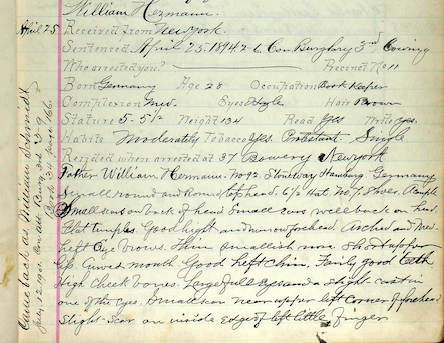 William Hermann.
April 25. Received from New York.
Sentenced April 25. 1894 2 6. Con. Burglary 3rd Cowing
Who arrested you? Precinct No 11
Born Germany Age 28 Occupation Book Keeper
Complexion Med. Eyes Hair Brown
Stature 5-5 1/2 Weight 134 Read Yes Write Yes.
Habits Moderately Tobacco Yes. Protestant Single
Resided when arrested at 37 Bowery New York
Father William Hermann. No 92. Hamburg Germany
Small round and head. 6 1/2 Hat. No 7. Shoes.
Small scar on back of head small ears well back on head
Flat temples. Good height and narrow forehead. Arched and Med.
Left Eye brows. Thin smallish nose short upper
lip. Curved mouth Good left chin. Fairly good teeth
High cheek bones. Large full Eyes and a slight cast in
one of the eyes. Small scar near upper left corner of forehead
Slight scar on inside edge of left little finger
Came back as William Schmidt
July 12. 1901. Con Att Burg 3rd 2-9
Book 34 page 166.